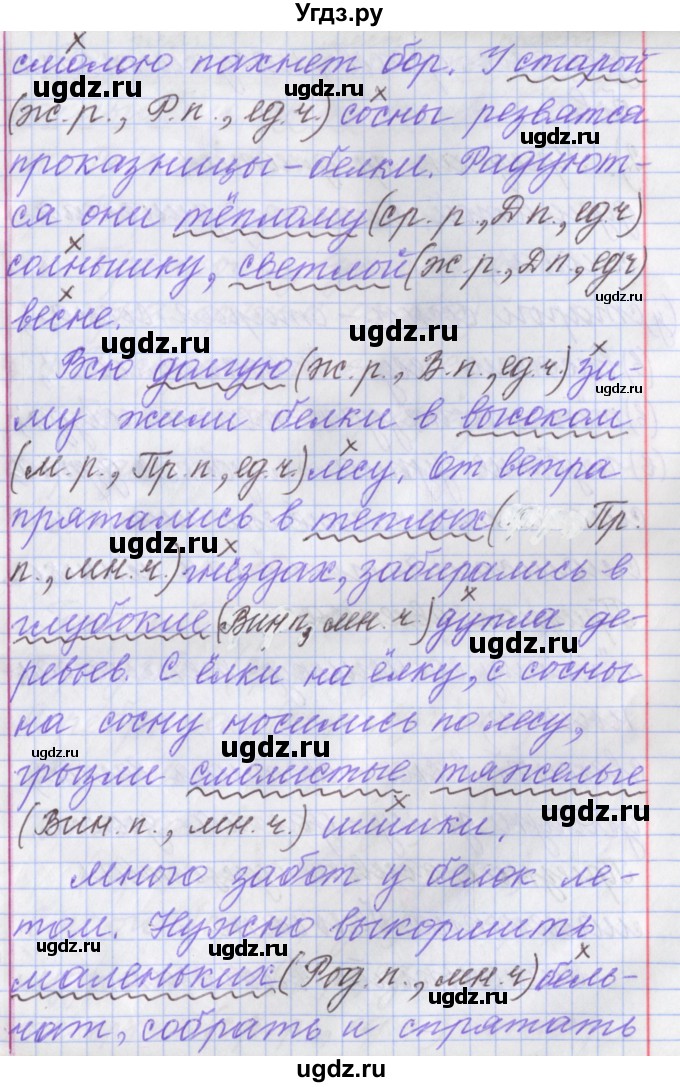 Угдз.ру
смолою пахнет бор. У старой
(ж.р., Р.п., ед.ч.) сосны резвятся
проказницы-белки. Радуют-
ся они тёплому (ср.р., Д.п., ед.ч)
солнышку, светлой (ж.р., Д.п., ед.ч)
весне.
Всю долгую (ж.р., В.п., ед.ч.) зи-
му жили белки в высоком
(м.р., Пр.п., ед.ч.) лесу. От ветра
прятались в тёплых ( Пр.
п., мн.ч.) гнёздах, забирались в
глубокие (Вин.п, мн.ч) дупла де-
ревьев. С ёлки на ёлку, с сосны
на сосну носились по лесу,
грызли смолистые тяжелые
(Вин.п., мн.ч.) шишки.
Много забот у белок ле-
том. Нужно выкормить
маленьких (Род.п., мн.ч) бель-
чат, собрать и спрятать
ugdz.ru